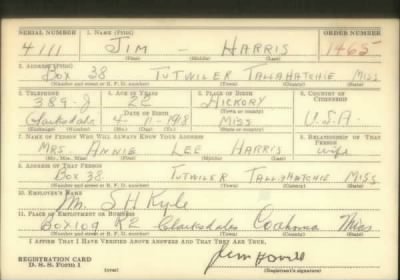 SERIAL NUMBER 1. NAME (Print) ORDER NUMBER
4111 JIM - HARRIS 1465
(First) (Middle) (Last)
2. ADDRESS (Print)
Box 38 TUTWILER TALLAHATCHIE MISS
(Number and street or R. F. D. number) (Town) (County) (State)
3. TELEPHONE 4. AGE IN YEARS 5. PLACE OF BIRTH 6. COUNTRY OF CITIZENSHIP
389-J 22 HICKORY
DATE OF BIRTH (Town or county)
Clarksdale 4-11-1918 MISS U.S.A.
(Exchange) (Number) (Mo.) (Day) (Yr.) (State or country)
7. NAME OF PERSON WHO WILL ALWAYS KNOW YOUR ADDRESS 8. RELATIONSHIP OF THAT PERSON
MRS. ANNIE LEE HARRIS wife
(Mr., Mrs., Miss) (First) (Middle) (Last)
9. ADDRESS OF THAT PERSON
Box 38 TUTWILER TALLAHATCHIE MISS
(Number and street or R. F. D. number) (Town) (County) (State)
10. EMPLOYER'S NAME
Mr. S H Kyle
11. PLACE OF EMPLOYMENT OR BUSINESS
Box 109 R2 Clarksdale Coahoma Miss
(Number and street or R. F. D. number) (Town) (County) (State)
I AFFIRM THAT I HAVE VERIFIED ABOVE ANSWERS AND THAT THEY ARE TRUE.
REGISTRATION CARD
D. S. S. Form 1 (over) (Registrant's signature)